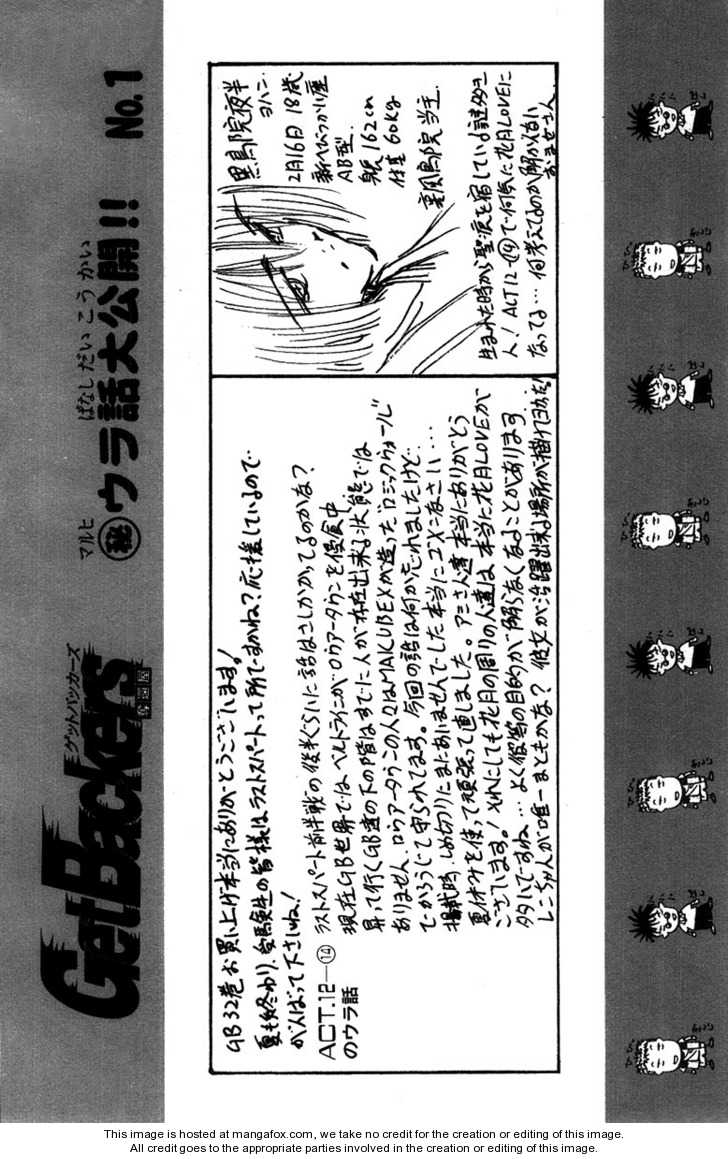 GetBackers
ゲットバッカーズ
奪還屋
マルヒ ばなし だい こうかい
㊙ウラ話大公開!! No.1
GB32巻お買い上げ本当にありがとうございます!
夏も終わり、受験生の皆様はラストスパートって所ですかね?応援しているので
がんばって下さいね!
ACT.12—⑭
のウラ話
ラストスパート前半戦の後半ぐらいに話はさしかかってるのかな?
現在GB世界ではベルトラインがロウアータウンを侵食中
昇って行くGB達の下の階はすでに人が存在出来る状態では
ありません、ロウアータウンの人々はMAKUBEXが造ったロジックウォール
でかろうじて守られてます。今回の話は何か忘れましたけど、
掲載時、しめ切りにまにあいませんでした本当にゴメンなさい...
夏休みを使って頑張って直しました。アニさん達 本当にありがとう
ございます!それにしても花月の周りの人達は、本当に花月LOVEが
タタイですね...よく彼等の目的が解らなくなることがあります
レンちゃんが唯一まともかな? 彼女が活躍出来る場所が描ければな
黒鳥院夜半
ヨハン
2月16日 18歳
新へびつかい座
AB型
身長 162cm
体重 60kg
裏風鳥院当主
生まれた時から聖痕を宿している謎多き
人!ACT12—⑲で一気に花月LOVEに
なってる... 何考えてるのか解からない
おませさん
This image is hosted at mangafox.com, we take no credit for the creation or editing of this image.
All credit goes to the appropriate parties involved in the creation or editing of this image.